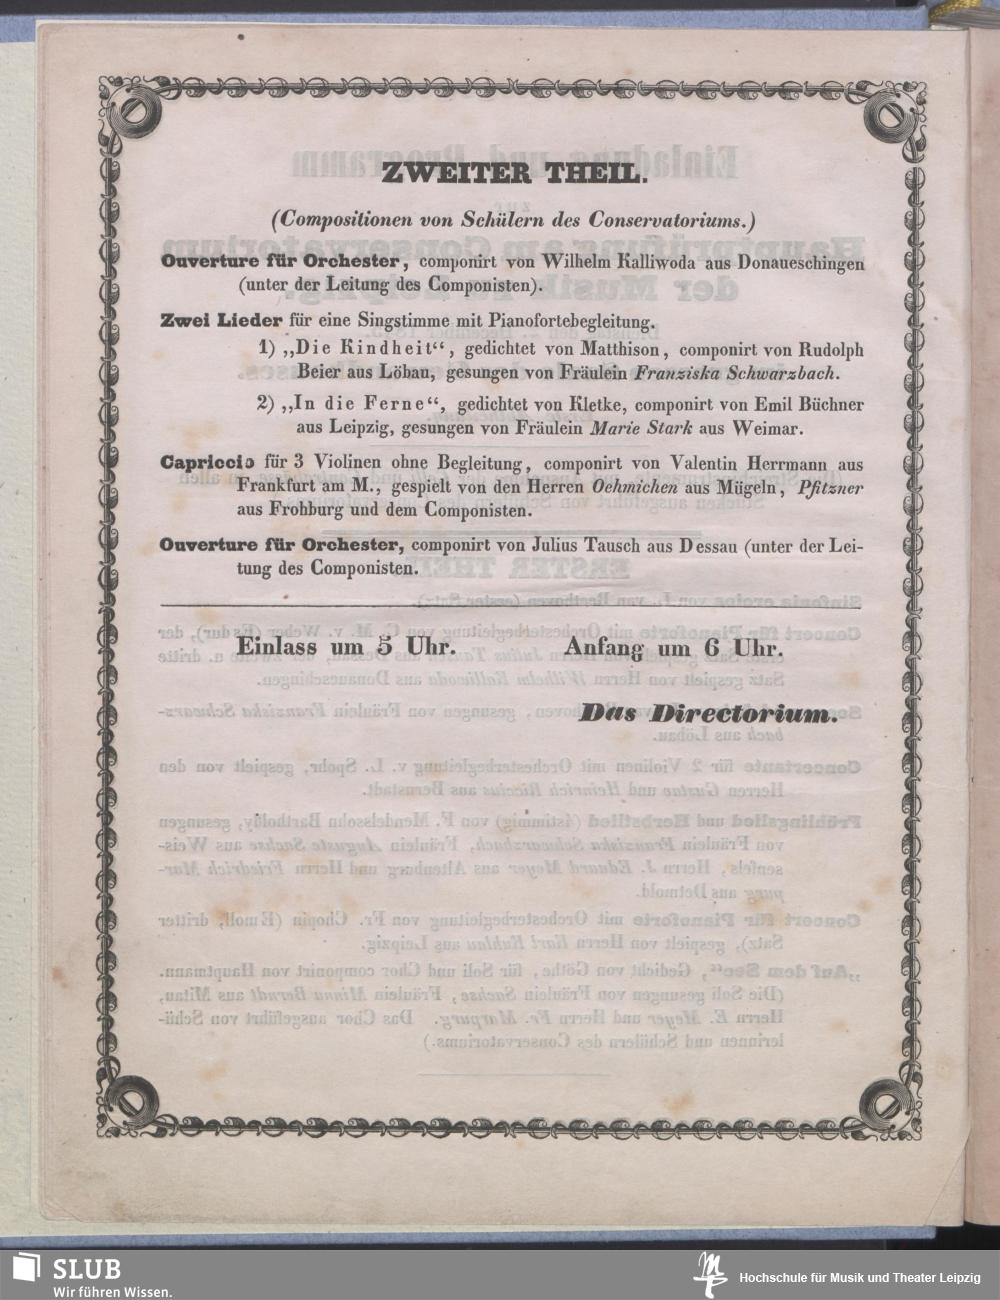 ZWEITER THEIL.
(Compositionen von Schülern des Conservatoriums.)
Ouverture für Orchester, componirt von Wilhelm Kalliwoda aus Donaueschingen
(unter der Leitung des Componisten).
Zwei Lieder für eine Singstimme mit Pianofortebegleitung.
1) „Die Kindheit“, gedichtet von Matthison, componirt von Rudolph
Beier aus Löbau, gesungen von Fräulein Franziska Schwarzbach.
2) „In die Ferne“, gedichtet von Kletke, componirt von Emil Büchner
aus Leipzig, gesungen von Fräulein Marie Stark aus Weimar.
Capriccio für 3 Violinen ohne Begleitung, componirt von Valentin Herrmann aus
Frankfurt am M., gespielt von den Herren Oehmichen aus Mügeln, Pfitzner
aus Frohburg und dem Componisten.
Ouverture für Orchester, componirt von Julius Tausch aus Dessau (unter der Lei-
tung des Componisten.
Einlass um 5 Uhr. Anfang um 6 Uhr.
Das Directorium.
SLUB
Wir führen Wissen.
Hochschule für Musik und Theater Leipzig